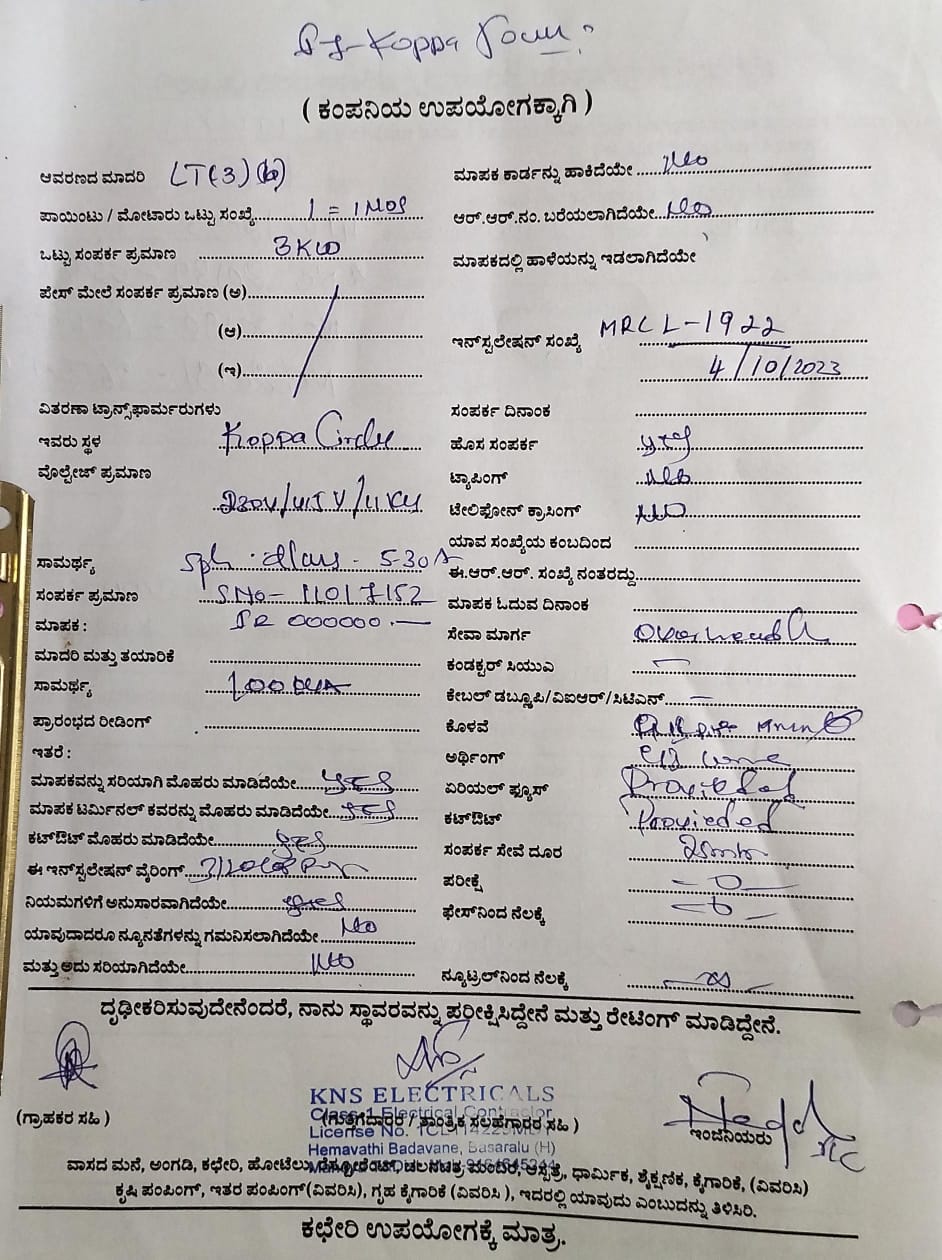 Koppa Town
( ಕಂಪನಿಯ ಉಪಯೋಗಕ್ಕಾಗಿ )
ಆವರಣದ ಮಾದರಿ LT(3)(b)
ಮಾಪಕ ಕಾರ್ಡನ್ನು ಹಾಕಿದೆಯೇ ..... No
ಪಾಯಿಂಟು / ಮೋಟಾರು ಒಟ್ಟು ಸಂಖ್ಯೆ..... 1 = 1 Nos
ಆರ್.ಆರ್.ನಂ. ಬರೆಯಲಾಗಿದೆಯೇ... No
ಒಟ್ಟು ಸಂಪರ್ಕ ಪ್ರಮಾಣ ..... 3KW
ಮಾಪಕದಲ್ಲಿ ಹಾಳೆಯನ್ನು ಇಡಲಾಗಿದೆಯೇ
ಪೇಸ್ ಮೇಲೆ ಸಂಪರ್ಕ ಪ್ರಮಾಣ (ಅ).....
(ಆ).....
ಇನ್‌ಸ್ಟಲೇಷನ್ ಸಂಖ್ಯೆ MRCL-1922
(ಇ).....
4/10/2023
ವಿತರಣಾ ಟ್ರಾನ್ಸ್‌ಫಾರ್ಮರುಗಳು
ಸಂಪರ್ಕ ದಿನಾಂಕ .....
ಇವರು ಸ್ಥಳ Koppa Circle
ಹೊಸ ಸಂಪರ್ಕ Yes
ವೊಲ್ಟೇಜ್ ಪ್ರಮಾಣ
ಟ್ಯಾಪಿಂಗ್ No
230V/415V/11KV
ಟೇಲಿಫೋನ್ ಕ್ರಾಸಿಂಗ್ NO
ಯಾವ ಸಂಖ್ಯೆಯ ಕಂಬದಿಂದ .....
ಸಾಮರ್ಥ್ಯ 5-30A
ಈ.ಆರ್.ಆರ್. ಸಂಖ್ಯೆ ನಂತರದ್ದು.....
ಸಂಪರ್ಕ ಪ್ರಮಾಣ SNo- 11017152
ಮಾಪಕ ಓದುವ ದಿನಾಂಕ .....
ಮಾಪಕ : 000000.—
ಸೇವಾ ಮಾರ್ಗ Overhead
ಮಾದರಿ ಮತ್ತು ತಯಾರಿಕೆ .....
ಕಂಡಕ್ಟರ್ ಸಿಯುಎ —
ಸಾಮರ್ಥ್ಯ 100 KVA
ಕೇಬಲ್ ಡಬ್ಲ್ಯೂಪಿ/ವಿಐಆರ್/ಸಿಟಿಎನ್..... —
ಪ್ರಾರಂಭದ ರೀಡಿಂಗ್ .....
ಕೊಳವೆ
ಇತರೆ :
ಅರ್ಥಿಂಗ್
ಮಾಪಕವನ್ನು ಸರಿಯಾಗಿ ಮೊಹರು ಮಾಡಿದೆಯೇ... Yes
ಏರಿಯಲ್ ಫ್ಯೂಸ್ Provided
ಮಾಪಕ ಟರ್ಮಿನಲ್ ಕವರನ್ನು ಮೊಹರು ಮಾಡಿದೆಯೇ... Yes
ಕಟ್‌ಔಟ್ Provieded
ಕಟ್‌ಔಟ್ ಮೊಹರು ಮಾಡಿದೆಯೇ..... Yes
ಸಂಪರ್ಕ ಸೇವೆ ದೂರ
ಈ ಇನ್‌ಸ್ಟಲೇಷನ್ ವೈರಿಂಗ್...
ಪರೀಕ್ಷೆ
ನಿಯಮಗಳಿಗೆ ಅನುಸಾರವಾಗಿದೆಯೇ..... Yes
ಫೇಸ್‌ನಿಂದ ನೆಲಕ್ಕೆ
ಯಾವುದಾದರೂ ನ್ಯೂನತೆಗಳನ್ನು ಗಮನಿಸಲಾಗಿದೆಯೇ..... No
ಮತ್ತು ಅದು ಸರಿಯಾಗಿದೆಯೇ..... No
ನ್ಯೂಟ್ರಲ್‌ನಿಂದ ನೆಲಕ್ಕೆ
ದೃಢೀಕರಿಸುವುದೇನೆಂದರೆ, ನಾನು ಸ್ಥಾವರವನ್ನು ಪರೀಕ್ಷಿಸಿದ್ದೇನೆ ಮತ್ತು ರೇಟಿಂಗ್ ಮಾಡಿದ್ದೇನೆ.
KNS ELECTRICALS
Class-1 Electrical Contractor
(ಗ್ರಾಹಕರ ಸಹಿ )
(ಗುತ್ತಿಗೆದಾರರ / ತಾಂತ್ರಿಕ ಸಲಹೆಗಾರರ ಸಹಿ )
License No.
ಇಂಜಿನಿಯರು
Hemavathi Badavane, Basaralu (H)
ವಾಸದ ಮನೆ, ಅಂಗಡಿ, ಕಛೇರಿ, ಹೋಟೆಲು, ಆಸ್ಪತ್ರೆ, ಧಾರ್ಮಿಕ, ಶೈಕ್ಷಣಿಕ, ಕೈಗಾರಿಕೆ, (ವಿವರಿಸಿ)
ಕೃಷಿ ಪಂಪಿಂಗ್, ಇತರ ಪಂಪಿಂಗ್(ವಿವರಿಸಿ), ಗೃಹ ಕೈಗಾರಿಕೆ (ವಿವರಿಸಿ ), ಇದರಲ್ಲಿ ಯಾವುದು ಎಂಬುದನ್ನು ತಿಳಿಸಿರಿ.
ಕಛೇರಿ ಉಪಯೋಗಕ್ಕೆ ಮಾತ್ರ.